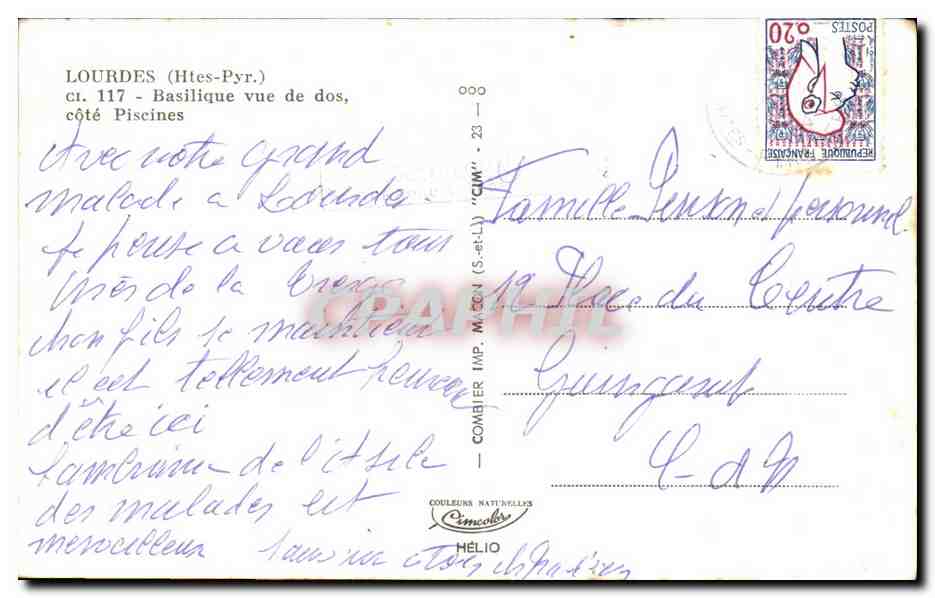 LOURDES (Htes-Pyr.)
CI. 117 - Basilique vue de dos,
côté Piscines
Avec notre grand
malade a Lourdes
Je pense a vous tous
Près de la Vierge
mon fils se maintien
il est tellement heureux
d'être ici
L'ambiance de l'Asile
des malades est
merveilleux
COMBIER IMP. MACON (S.-et-L.) "CIM" - 23 -
COULEURS NATURELLES
Cimcolor
HÉLIO
0.20
POSTES
REPUBLIQUE FRANÇAISE
Famille et personnel
12 Place du Centre
Guingamp
C-d-N
CPAPHIL